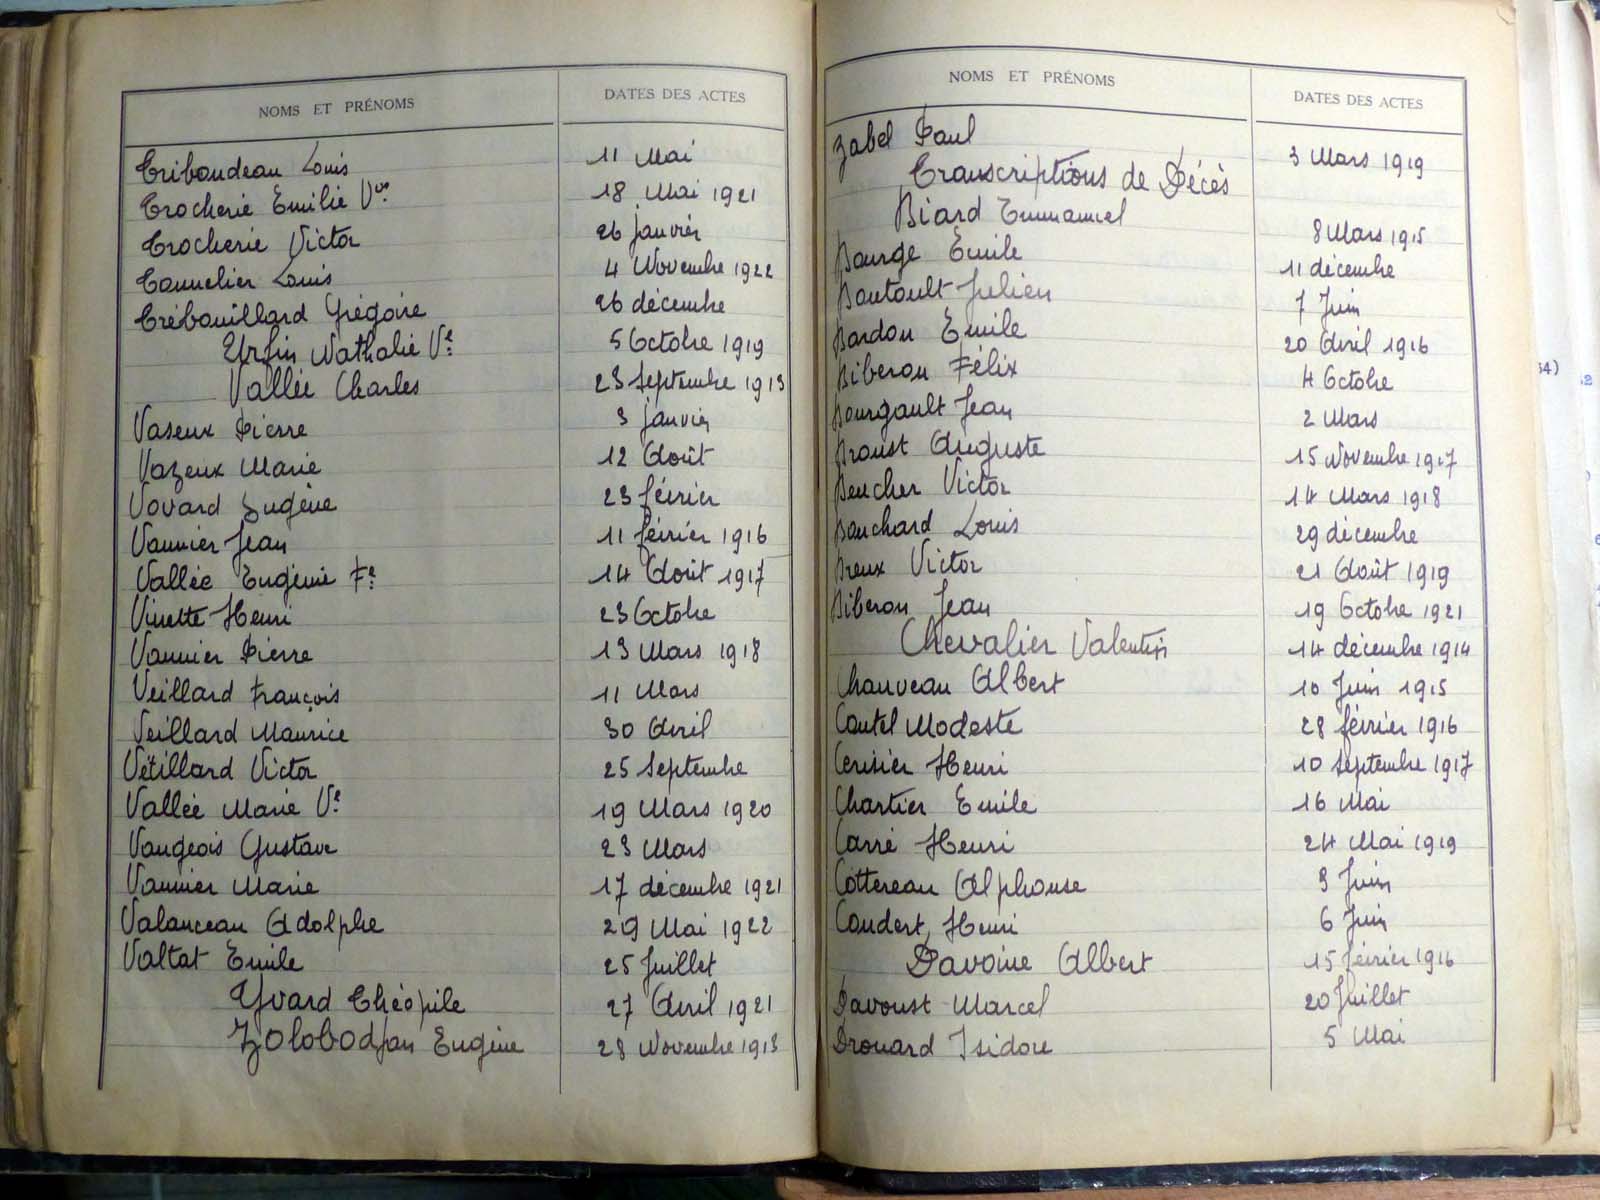 NOMS ET PRÉNOMS DATES DES ACTES
Tribondeau Louis 11 Mai
Trocherie Emilie Vve 18 Mai 1921
Trocherie Victor 26 janvier
Tonnelier Louis 4 Novembre 1922
Trébouillard Grégoire 26 décembre
Urfin Nathalie Ve 5 Octobre 1919
Vallée Charles 23 Septembre 1913
Vaseux Pierre 3 janvier
Vazeux Marie 12 Août
Vovard Eugène 23 février
Vannier Jean 11 février 1916
Vallée Eugénie Fe 14 Août 1917
Vinette Henri 23 Octobre
Vannier Pierre 13 Mars 1918
Veillard François 11 Mars
Veillard Maurice 30 Avril
Vétillard Victor 25 Septembre
Vallée Marie Ve 19 Mars 1920
Vaugeois Gustave 23 Mars
Vannier Marie 17 décembre 1921
Valanceau Adolphe 29 Mai 1922
Valtat Emile 25 Juillet
Yvard Théopile 27 Avril 1921
Zolobodjan Eugène 28 Novembre 1913
NOMS ET PRÉNOMS DATES DES ACTES
Zabel Paul 3 Mars 1919
Transcriptions de Décès
Biard Emmanuel 8 Mars 1915
Bourge Emile 11 décembre
Boutault Julien 7 Juin
Bardou Emile 20 Avril 1916
Biberon Félix 4 Octobre
Bourgault Jean 2 Mars
Broust Auguste 15 Novembre 1917
Beucher Victor 14 Mars 1918
Bouchard Louis 29 décembre
Breux Victor 21 Août 1919
Biberon Jean 19 Octobre 1921
Chevalier Valentin 14 décembre 1914
Chauveau Albert 10 Juin 1915
Coutel Modeste 28 février 1916
Cerisier Henri 10 Septembre 1917
Chartier Emile 16 Mai
Carré Henri 24 Mai 1919
Cottereau Alphonse 3 Juin
Coudert, Henri 6 Juin
Davoine Albert 15 février 1916
Davoust Marcel 20 Juillet
Drouard Isidore 5 Mai